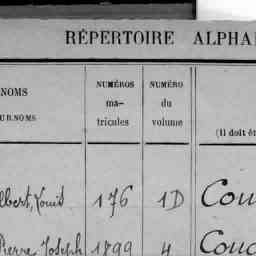 RÉPERTOIRE ALPHA
NOMS
NUMÉROS
ma-
tricules
NUMÉRO
du
volume
UR.NOMS
(Il doit êt
lbert, Louis 176 1D Cou
Pierre, Joseph 1899 4 Couc